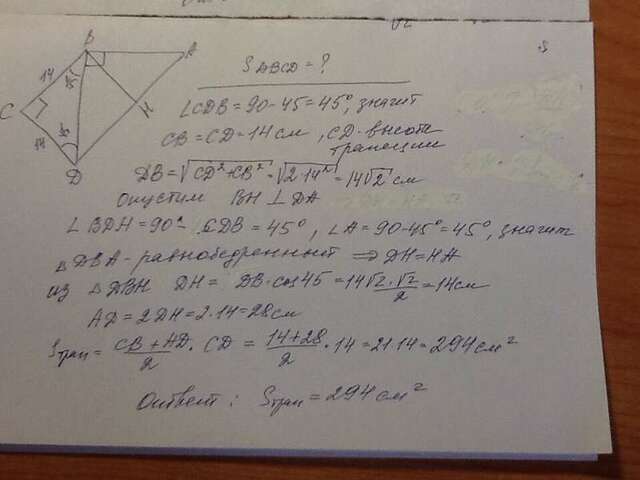 B
A
14
45
C
H
14
45
D
S ABCD = ?
∠CDB = 90-45 = 45°, значит
CB = CD = 14 см, CD-высота
трапеции
DB = √CD²+CB² = √2·14² = 14√2 см
Опустим BH ⊥ DA
∠BDH = 90° - CDB = 45°, ∠A = 90-45° = 45°, значит
△DBA - равнобедренный ⇒ DH = HA
из △DBH DH = DB·cos45 = 14√2·√2/2 = 14см
AD = 2DH = 2·14 = 28см
Sтрап = CB+AD/2 · CD = 14+28/2 · 14 = 21·14 = 294 см²
Ответ: Sтрап = 294 см²